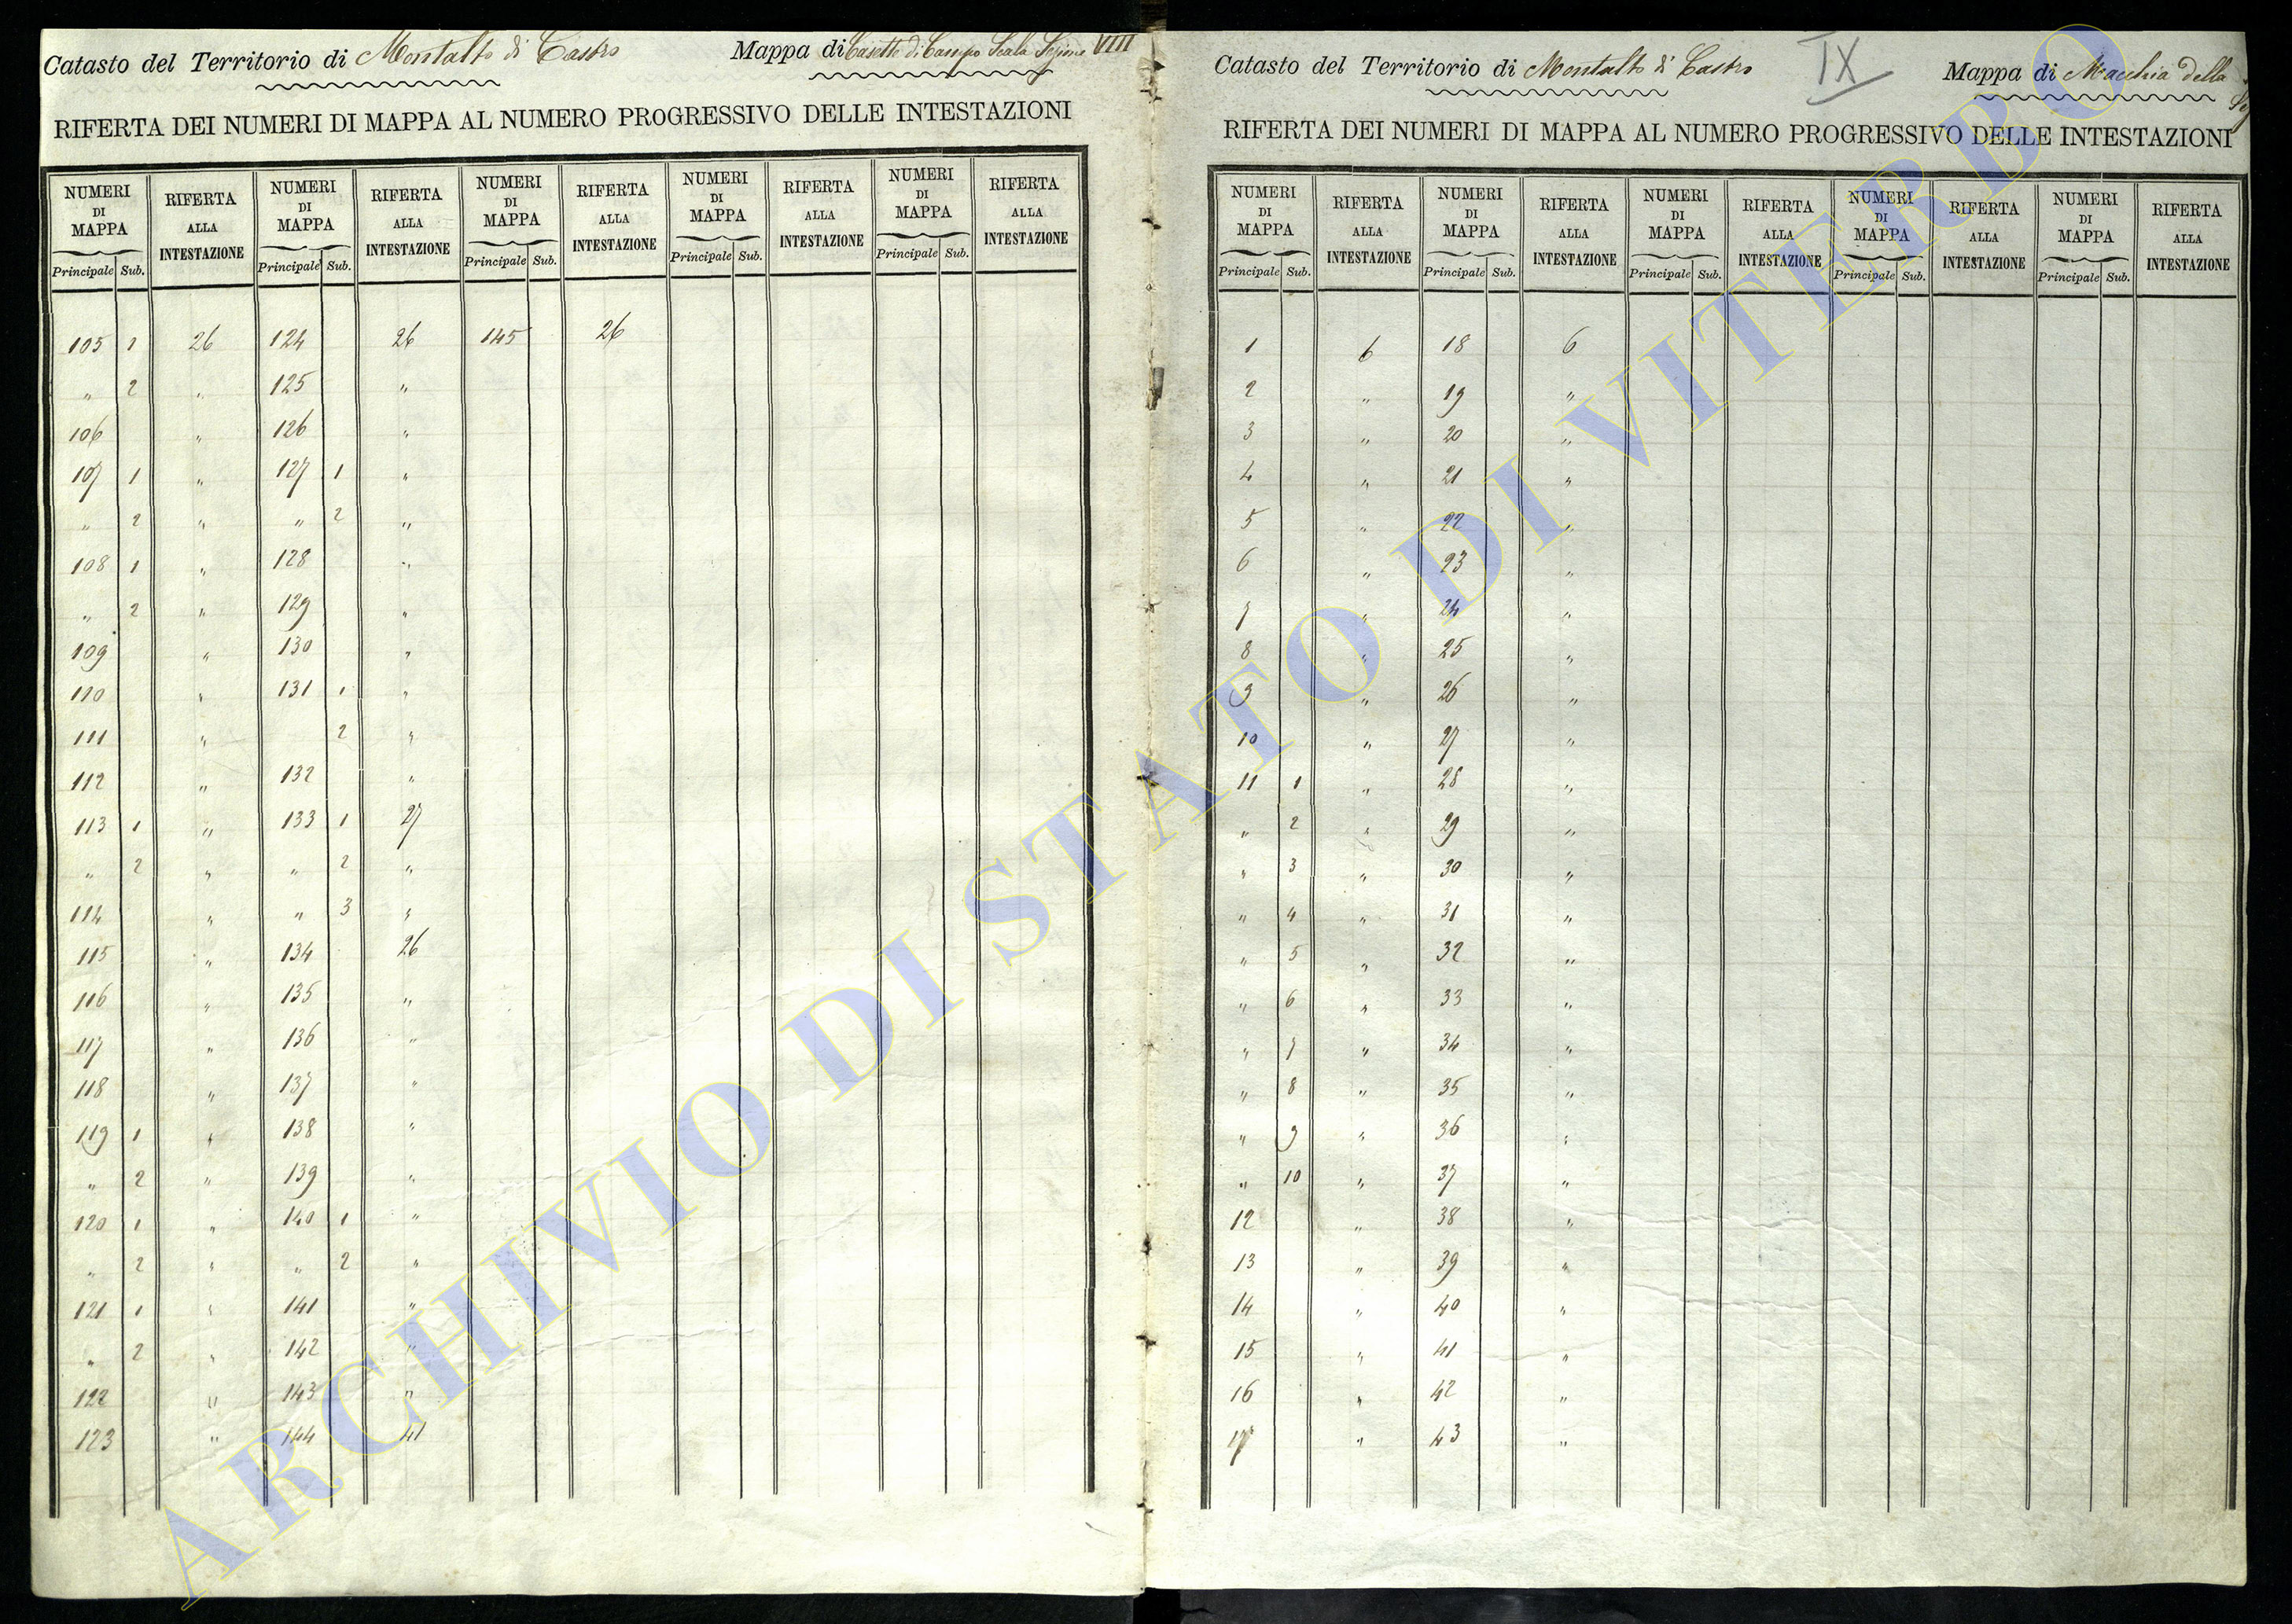 Catasto del Territorio di Montalto di Castro Mappa di Casette di Campo Scala Sezione VIII
RIFERTA DEI NUMERI DI MAPPA AL NUMERO PROGRESSIVO DELLE INTESTAZIONI
NUMERI DI MAPPA RIFERTA ALLA INTESTAZIONE NUMERI DI MAPPA RIFERTA ALLA INTESTAZIONE NUMERI DI MAPPA RIFERTA ALLA INTESTAZIONE NUMERI DI MAPPA RIFERTA ALLA INTESTAZIONE NUMERI DI MAPPA RIFERTA ALLA INTESTAZIONE
Principale Sub. Principale Sub. Principale Sub. Principale Sub. Principale Sub.
105 1 26 124 26 145 26
" 2 " 125 "
106 " 126 "
107 1 " 127 1 "
" 2 " " 2 "
108 1 " 128 "
" 2 " 129 "
109 " 130 "
110 " 131 1 "
111 " 2 "
112 " 132 "
113 1 " 133 1 27
" 2 " " 2 "
114 " " 3 "
115 " 134 26
116 " 135 "
117 " 136 "
118 " 137 "
119 1 " 138 "
" 2 " 139 "
120 1 " 140 1 "
" 2 " " 2 "
121 1 " 141 "
" 2 " 142 "
122 " 143 "
123 " 144 41
Catasto del Territorio di Montalto di Castro IX Mappa di Macchia della
RIFERTA DEI NUMERI DI MAPPA AL NUMERO PROGRESSIVO DELLE INTESTAZIONI
NUMERI DI MAPPA RIFERTA ALLA INTESTAZIONE NUMERI DI MAPPA RIFERTA ALLA INTESTAZIONE NUMERI DI MAPPA RIFERTA ALLA INTESTAZIONE NUMERI DI MAPPA RIFERTA ALLA INTESTAZIONE NUMERI DI MAPPA RIFERTA ALLA INTESTAZIONE
Principale Sub. Principale Sub. Principale Sub. Principale Sub. Principale Sub.
1 6 18 6
2 " 19 "
3 " 20 "
4 " 21 "
5 " 22 "
6 " 23 "
7 " 24 "
8 " 25 "
9 " 26 "
10 " 27 "
11 1 " 28 "
" 2 " 29 "
" 3 " 30 "
" 4 " 31 "
" 5 " 32 "
" 6 " 33 "
" 7 " 34 "
" 8 " 35 "
" 9 " 36 "
" 10 " 37 "
12 " 38 "
13 " 39 "
14 " 40 "
15 " 41 "
16 " 42 "
17 " 43 "
ARCHIVIO DI STATO DI VITERBO